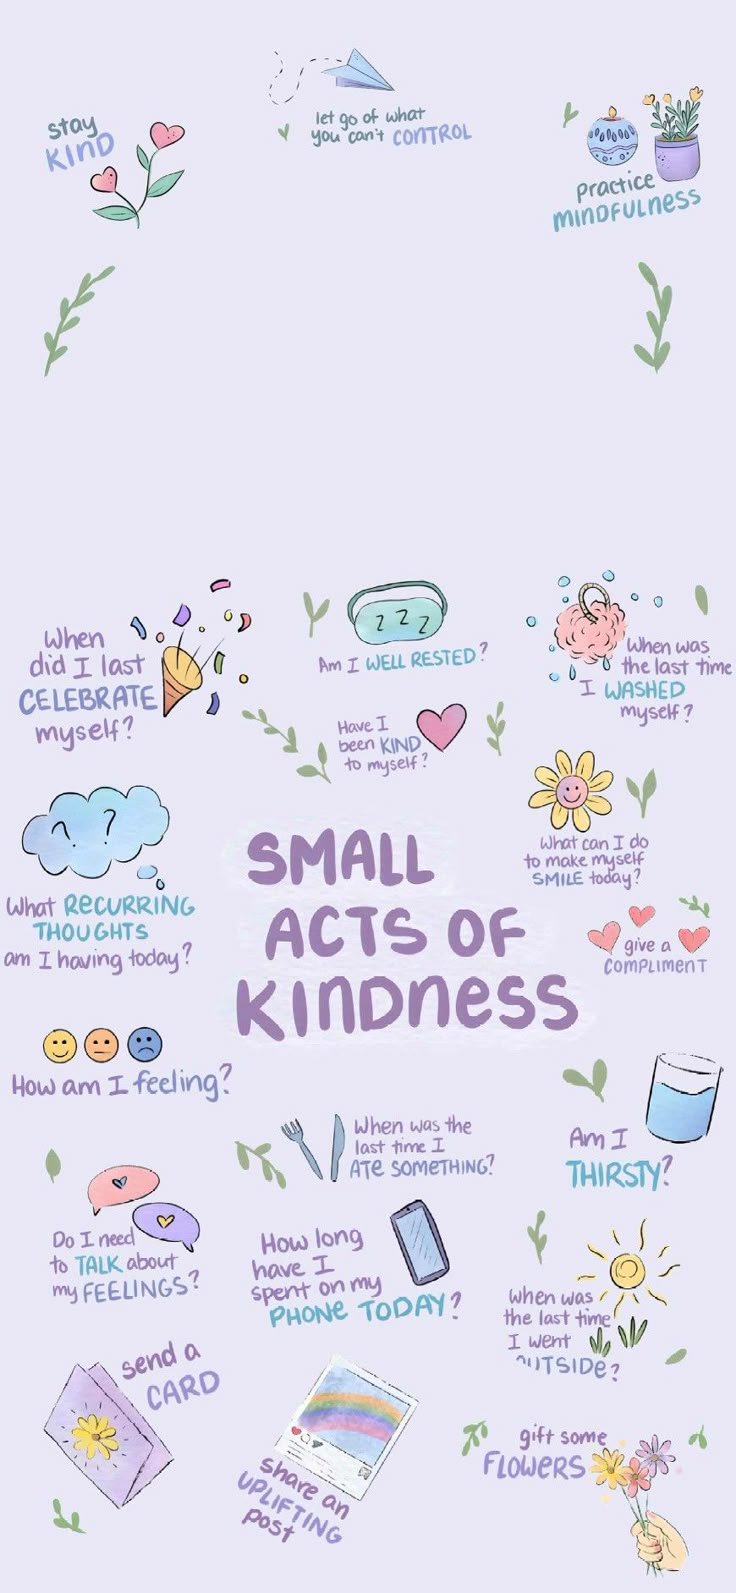 stay
KIND
let go of what
you can't CONTROL
practice
MINDFULNESS
When
did I last
CELEBRATE
myself?
z z z
Am I WELL RESTED?
When was
the last time
I WASHED
myself?
Have I
been KIND
to myself?
? ?
What RECURRING
THOUGHTS
am I having today?
What can I do
to make myself
SMILE today?
SMALL
ACTS OF
KINDNESS
give a
COMPLIMENT
How am I feeling?
Am I
THIRSTY?
When was the
last time I
ATE SOMETHING?
Do I need
to TALK about
my FEELINGS?
How long
have I
spent on my
PHONE TODAY?
When was
the last time
I went
OUTSIDE?
send a
CARD
share an
UPLIFTING
post
gift some
FLOWERS